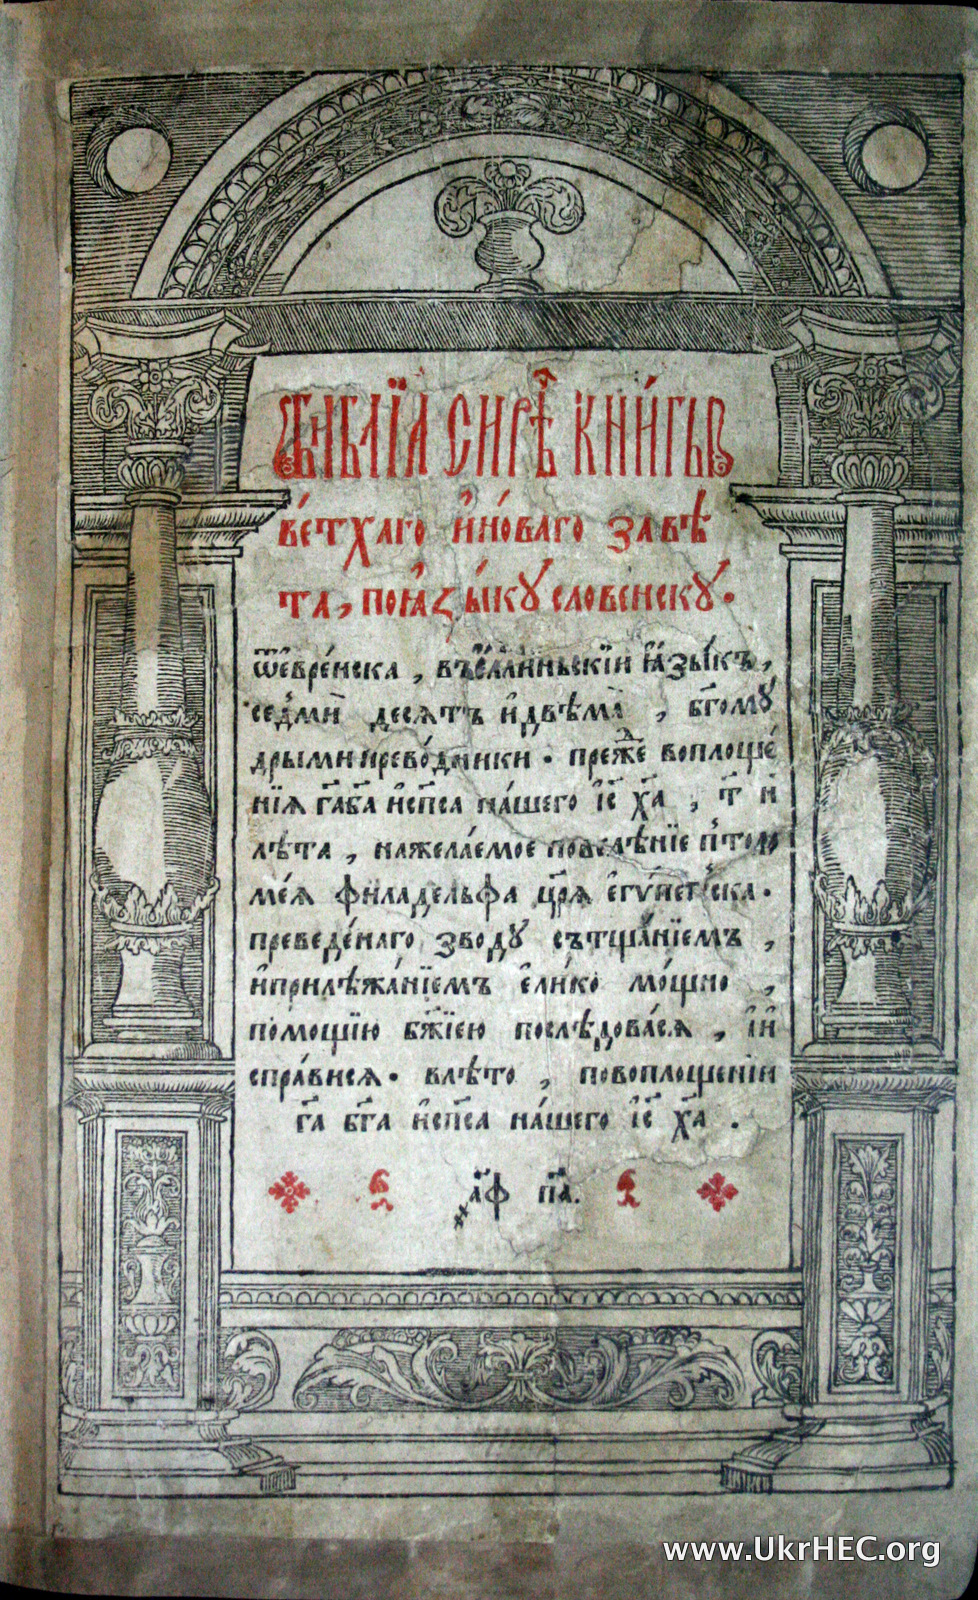 Бі́блїа сирѣ́ч кни́гы
ве́тхаго и҆но́ваго завѣ́
та, поꙗ҆зы́ку словенску.
ѿе҆вре́йска, въе҆́ллиньскїи ꙗ҆зы́къ,
седми́ десѧтъ и҆двѣма̀, бг҃ому́
дрыми преводники. преⷤже воплоще́
нїѧ гд҃а бг҃а и҆сп҃са на́шего і҆с҃ х҃а, т҃ и҃
лѣта, нажела́емое повелѣ́нїе пто́ло
ме́ѧ филаде́льфа цр҃ѧ є҆гѵ́петъска.
преведе́наго зводу сътща́нїемъ,
и҆прилѣжа́нїемъ є҆ли́ко мо́щно,
помощїю бж҃їею послѣ́довасѧ, і҆и҆
спра́висѧ. влѣто, повоплоще́нїи
гд҃а бг҃а и҆сп҃са на́шего і҆с҃ х҃а.
҂а҃ф п҃а.
www.UkrHEC.org